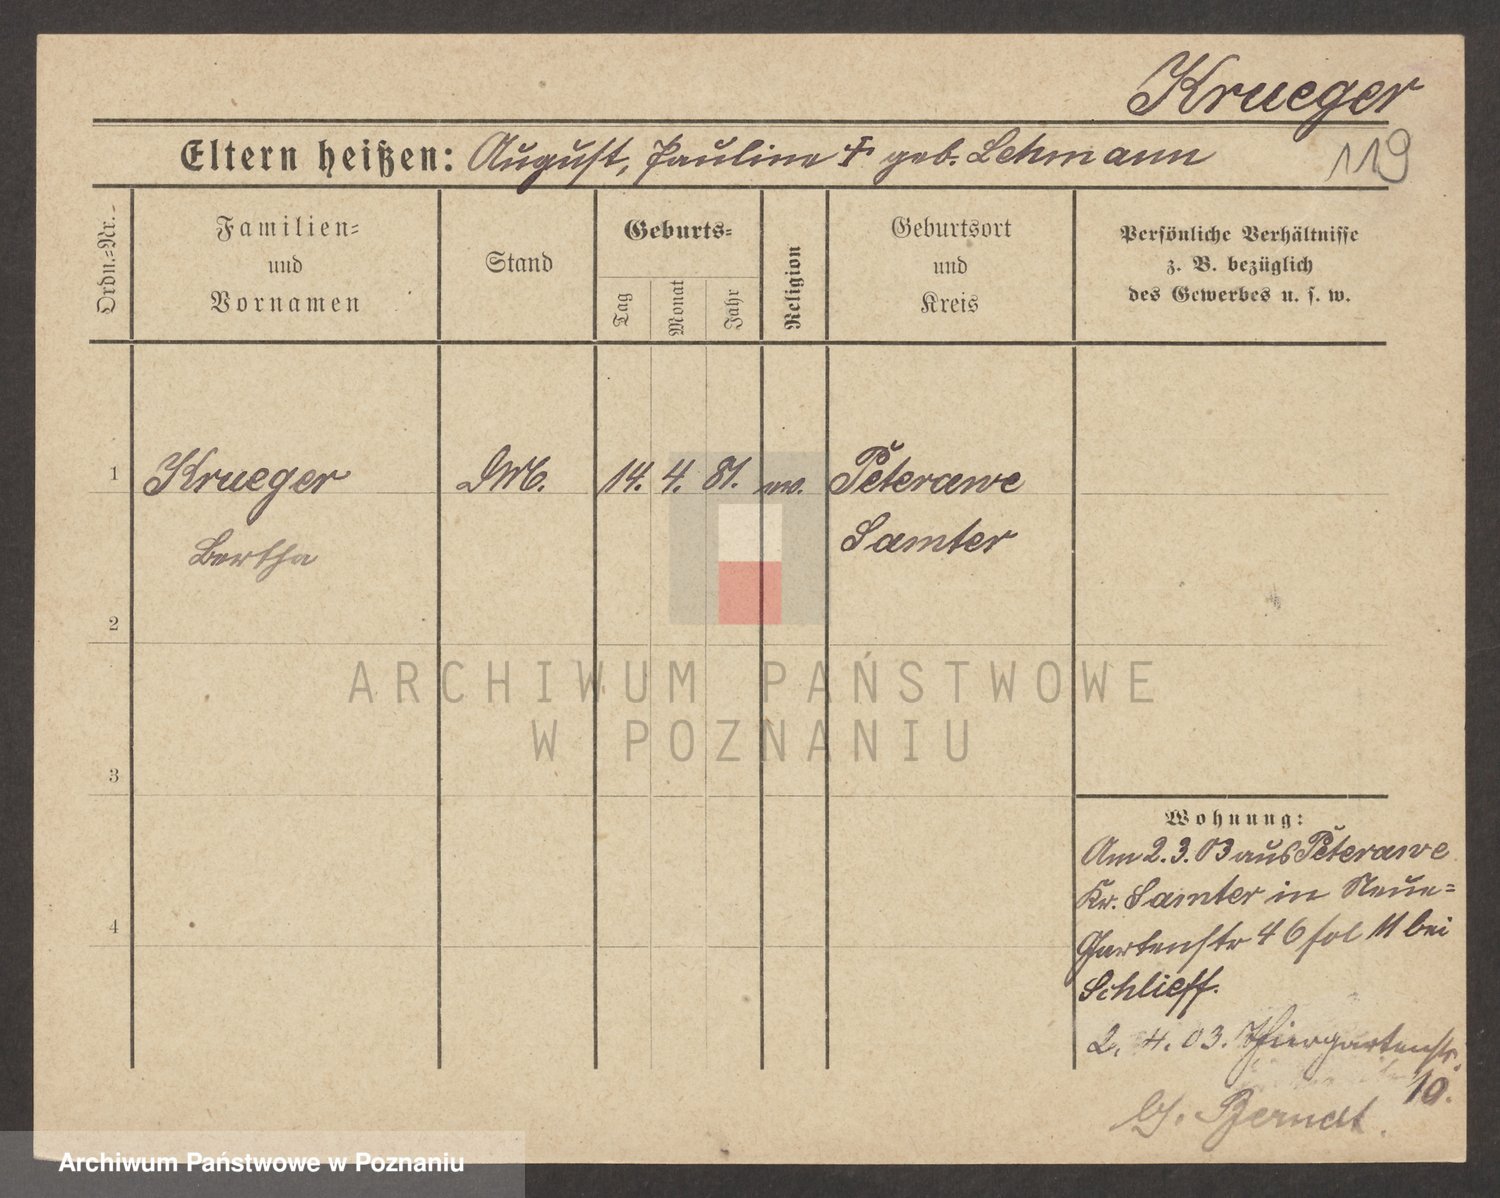 Krueger
119
Eltern heißen: August, Pauline † geb. Lehmann
Ordn.-Nr.
Familien-
und
Vornamen
Stand
Geburts-
Tag
Monat
Jahr
Religion
Geburtsort
und
Kreis
Persönliche Verhältnisse
z. B. bezüglich
des Gewerbes u. s. w.
1 Krueger 14. 4. 81. ev. Peterawe
Bertha Samter
2
3
4
Wohnung:
Am 2.3.03 aus Peterawe
Kr. Samter in Neue-
Gartenstr 46 fol 11 bei
Schlieff.
2. 4. 03. Thiergartenstr.
10.
b/. Berndt.
ARCHIWUM PAŃSTWOWE
W POZNANIU
Archiwum Państwowe w Poznaniu